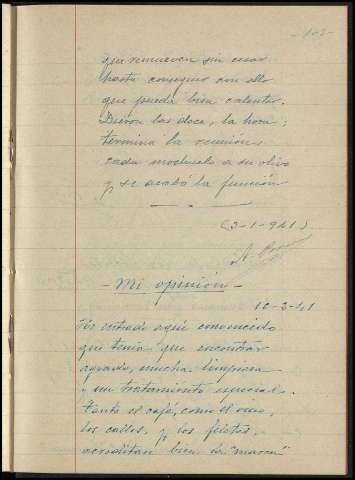 - 103 -
que remueven sin cesar
hasta conseguir con ello
que pueda bien calentar.
Dieron las doce, la hora;
terminó la reunión
cada mochuelo a su olivo
y se acabó la función
(3-1-941)
- Mi opinión -
10-3-41
He entrado aquí convencido
que tenía que encontrar
agrado, mucha limpieza
y un tratamiento especial.
Tanto el café, como el vino,
los callos, y los filetes,
acreditan bien la "marca"